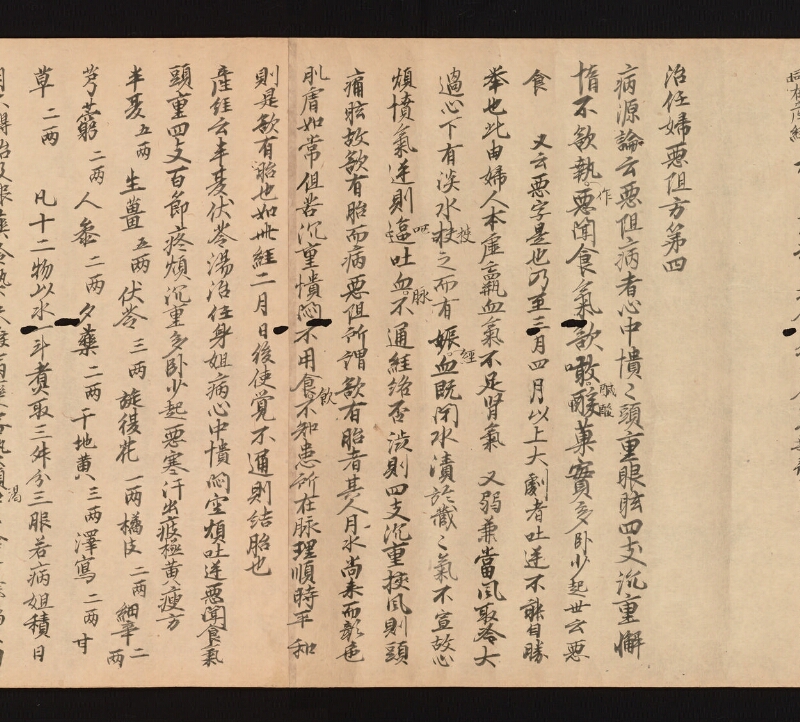 治任婦惡阻方第四
病源論云惡阻病者心中憒〻頭重眼眩四支沉重懈
惰不欲執作惡聞食氣欲噉醎酸菓實多卧少起世云惡
食 又云惡字是也乃至三月四月以上大劇者吐逆不能自勝
舉也此由婦人本虛羸血氣不足腎氣 又弱兼當風取冷大
過心下有淡水挾之而有娠經血既閇水漬於藏〻氣不宣故心
煩憒氣逆則嘔吐血脉不通經絡否澁則四支沉重挾風則頭
痛眩故欲有胎而病惡阻所謂欲有胎者其人月水尚来而顏色
肌膚如常但苦沉重憒悶不用飲食不知患所在脉理順時平和
則是欲有胎也如此經二月日後使覺不通則結胎也
產經云半夏伏苓湯治任身姐病心中憒悶空煩吐逆惡聞食氣
頭重四支百節疼煩沉重多卧少起惡寒汗出疲極黄瘦方
半夏五两 生薑五两 伏苓三两 旋復花一两 橘皮二两 細辛二两
芎藭二两 人參二两 夕藥二两 干地黄三两 澤寫二两 甘
草二两 凡十二物以水一斗煮取三舛分三服若病姐積日